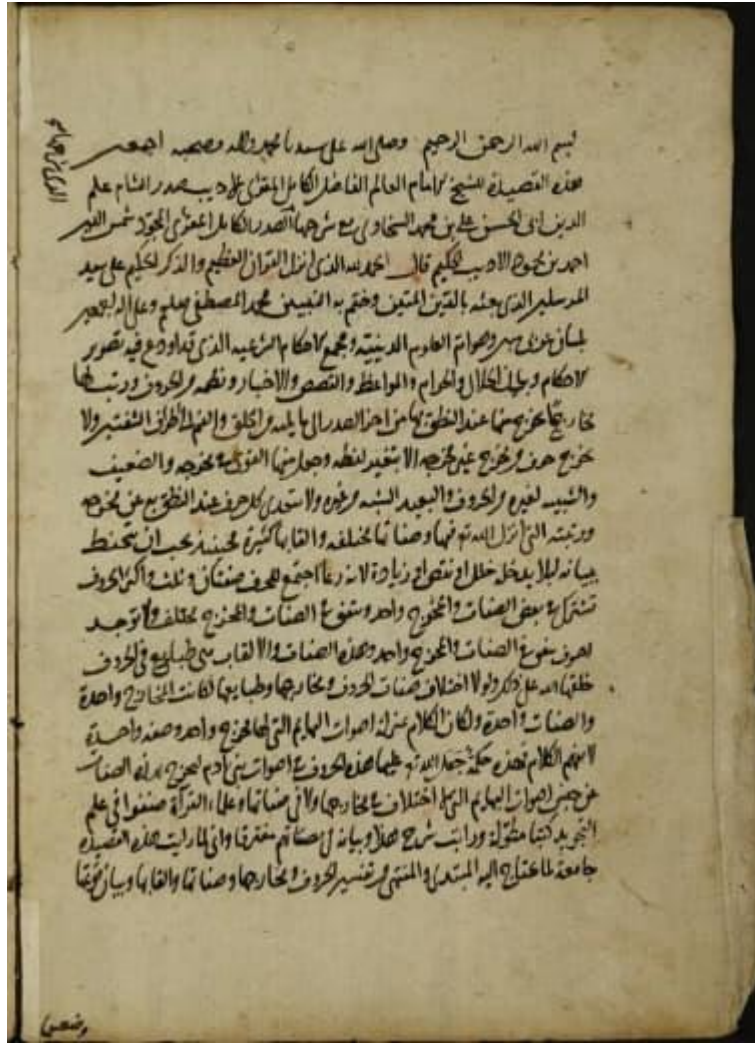 بسم الله الرحمن الرحيم وصلى الله على سيدنا محمد واله وصحبه اجمعين
هذه القصيدة للشيخ الامام العالم الفاضل الكامل المقرئ الاديب صدر الشام علم
الدين ابى الحسن على بن محمد السخاوى مع شرحها الصدر الكامل المقرئ المجود شمس الدين
احمد بن محمود الاديب الحكيم قال الحمد لله الذى انزل القران العظيم والذكر الحكيم على سيد
المرسلين الذى بعثه بالدين المتين وختم به النبيين محمد المصطفى صلعم وعلى اله اجمعين
بلسان عربى مبين العلوم الدينية ومجمع الاحكام الشرعيه الذى قد اودع فيه تصوير
الاحكام الحلال والحرام والمواعظ والقصص والاخبار ونظمه من الحروف ورتب لها
مخارج منها عند النطق بها من اخر الصدر الى ما يليه من الحلق والفم الى اطراف الشفتين ولا
يخرج حرف من مخرج غير مخرجه الا بتغير لفظه وجعل منها القوى مخرجه والضعيف
والشبيه لغيره من الحروف والبعيد الشبه من غيره ولا يتعدى كل حرف عند النطق به عن مخرجه
ورتبته التى انزل الله تع فيها وصفاتها مختلفه والقابها كثيرة فحينئذ يجب ان يتحفظ
ببيانه ليلا يدخل خلل او نقص او زيادة لانه ربما اجتمع للحرف صفتان وثلث واكثر الحروف
تشترك فى بعض الصفات والمخرج واحد وتتفق فى الصفات والمخرج مختلف ولا توجد
احرف تتفق فى الصفات والمخرج واحد وهذه الصفات والالقاب هى طبايع فى الحروف
خلقها الله على ذلك ولولا اختلاف صفات الحروف ومخارجها وطبايعها لكانت المخارج واحدة
والصفات واحدة ولكان الكلام بمنزلة اصوات البهايم التى لها مخرج واحد وصفه واحدة
لا يفهم الكلام فهذه حكمة جعل الله تع عليها هذه الحروف فى اصوات بنى ادم ليخرج بهذه الصفات
عن جنس اصوات البهايم التى لا اختلاف فى مخارجها ولا فى صفاتها وعلماء القراة صنفوا فى علم
التجويد كتبا مطولة ورايت شرح هذا وبيانه فى مصنفاتهم مفترقا وانى لما رايت هذه القصيدة
جامعة لما يحتاج اليه المبتدى والمنتهى من تفسير الحروف ومخارجها وصفاتها والقابها وبيان